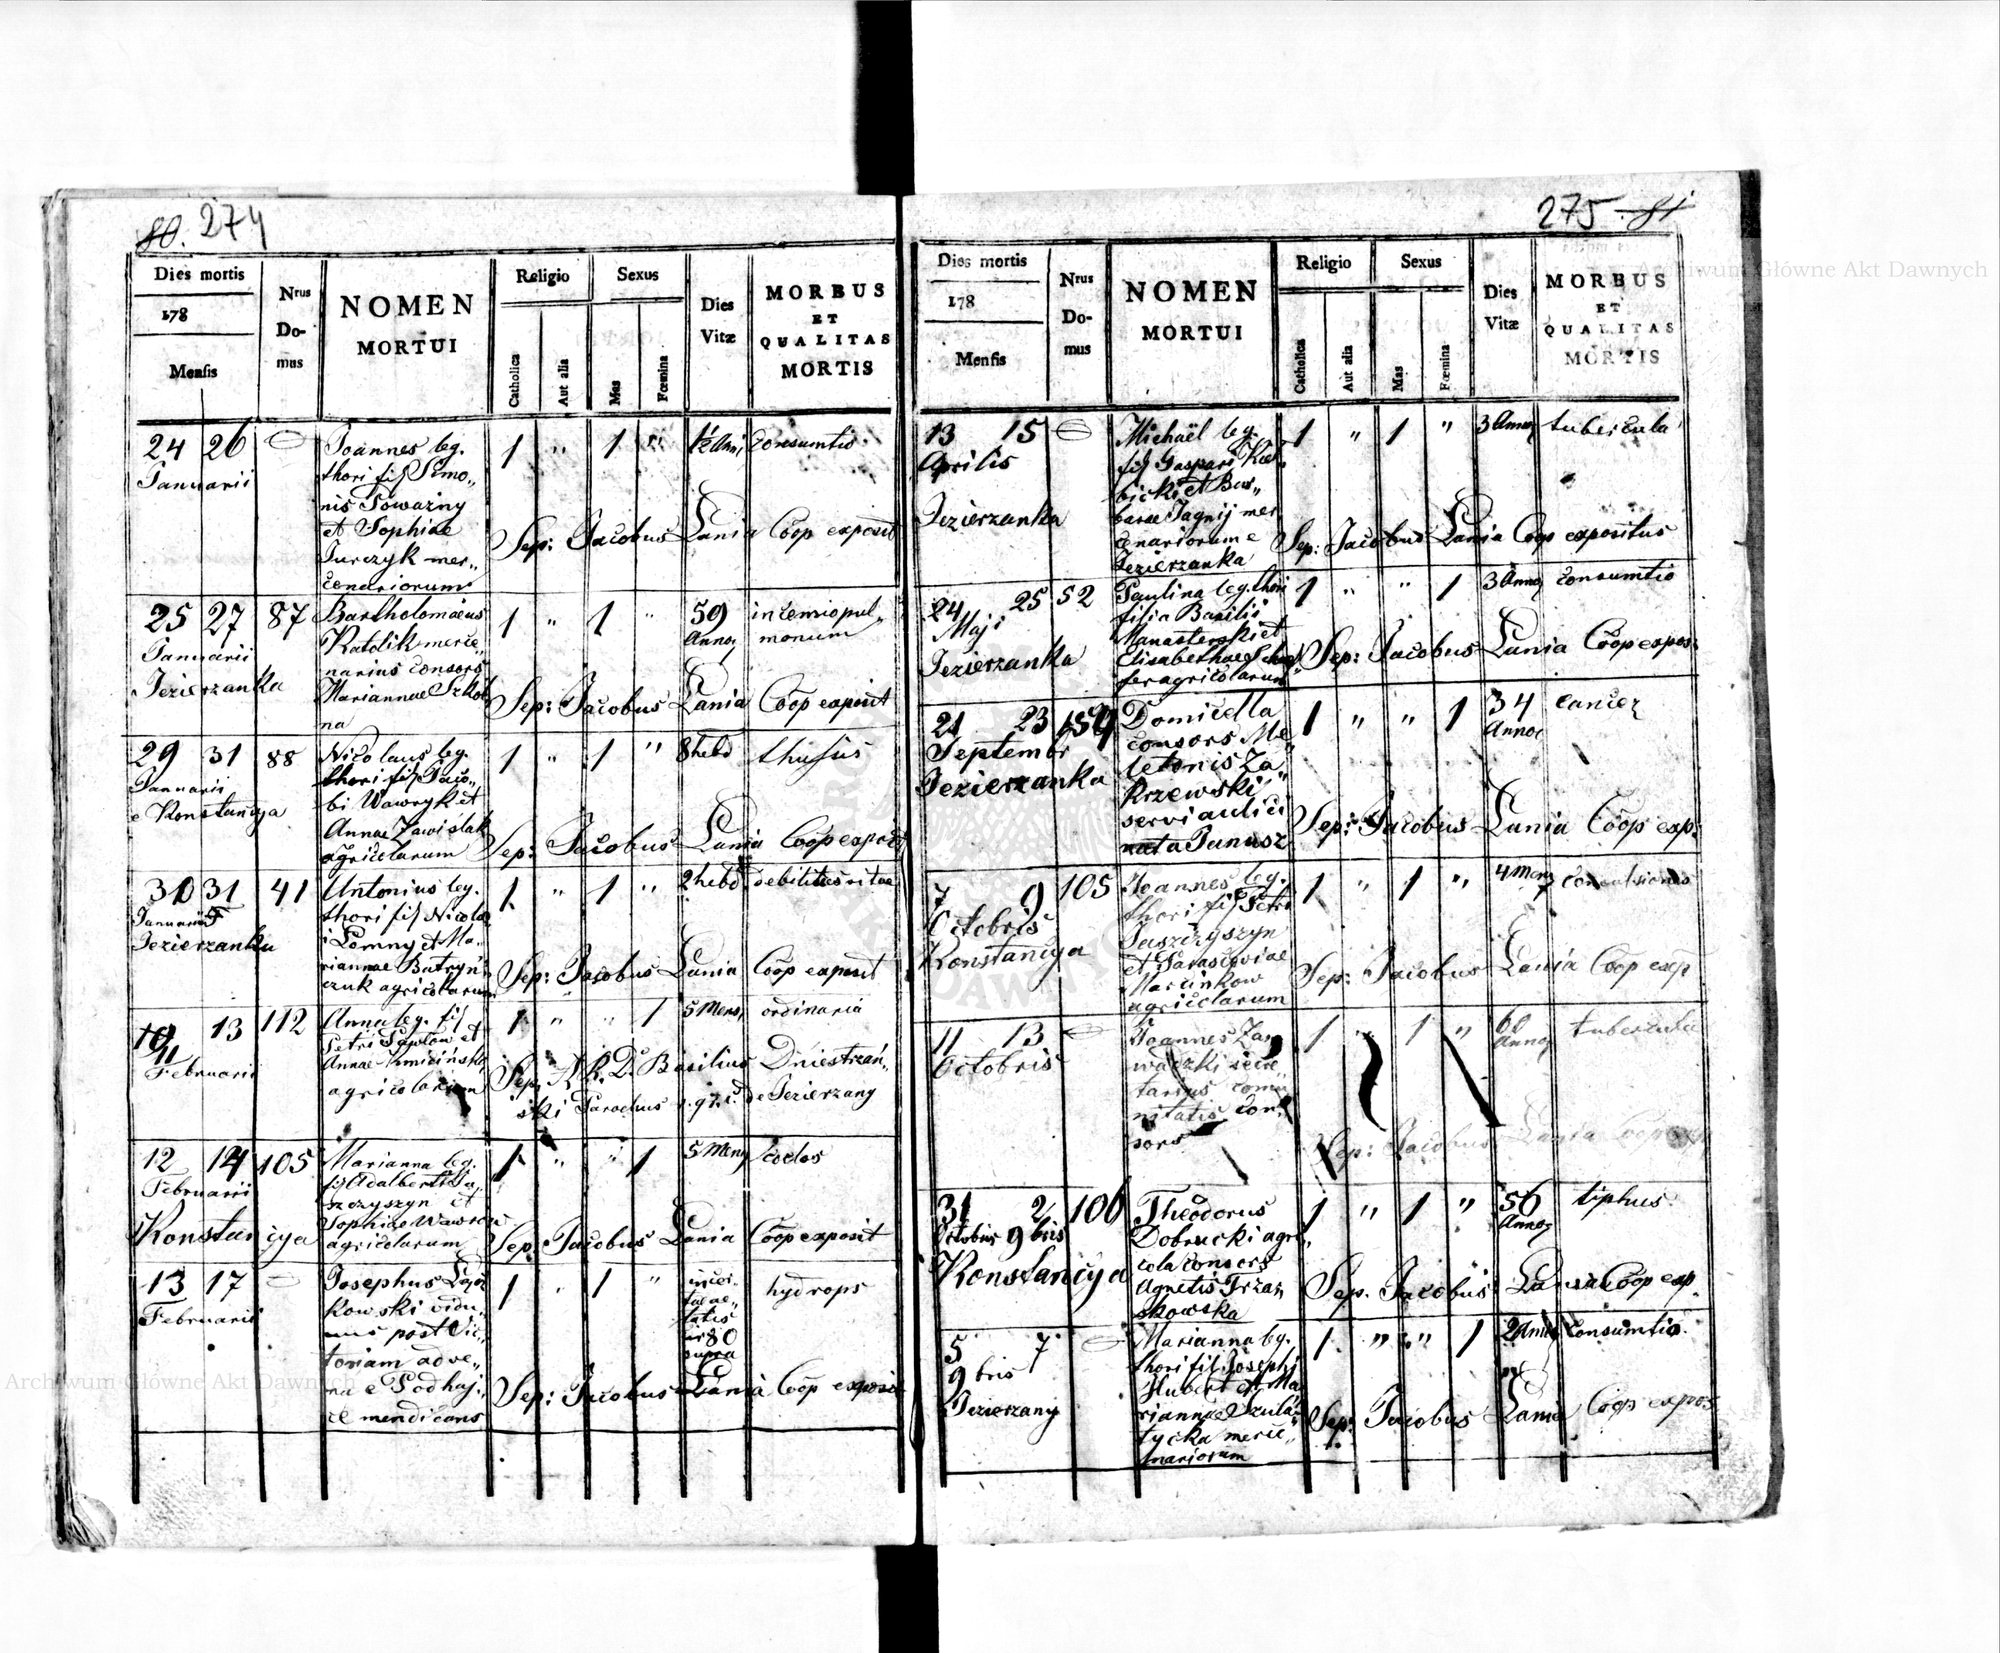 80. 274
Dies mortis
178
Mensis
Nrus
Do-
mus
NOMEN
MORTUI
Religio
Catholica
Aut alia
Sexus
Mas
Fœmina
Dies
Vitæ
MORBUS
ET
QUALITAS
MORTIS
24 26
Januarii
Joannes leg.
thori fil Simo„
nis Poważny
et Sophiae
Jurczyk mer„
cenariorum
1 " 1 "
1½ Anni
Consumtio
Sep: Jacobus Lania Coop exposit
25 27 87
Januarii
Jezierzanka
Bartholomaeus
merce„
narius consors
Mariannae Szkol
na
1 " 1 "
59
Annor
pul„
monum
Sep: Jacobus Lania Coop exposit
29 31 88
Januarii
e Konstancya
Nicolaus leg.
thori fil Jaco„
bi Wawryk et
Annae Zawislak
agricolarum
1 " 1 "
8 hebd
thusis
Sep: Jacobus Lania Coop exposit
30 31 41
Januarii
Jezierzanka
Antonius leg.
thori fil Nicola
i Lomny et Ma„
riannae Butryń
czuk agricolarum
1 " 1 "
2 hebd
debilitas vitae
Sep: Jacobus Lania Coop exposit
13 112
11
Februarii
Anna leg. fil
Petri Pawlow et
Annae
agricolarum
1 " " 1
5 Mens
ordinaria
Sep. A. R. D. Basilius Dniestrzań„
ski Parochus de Jezierzany
12 14 105
Februarii
Konstancya
Marianna leg.
fil Adalberti Ja
szczyszyn et
Sophiae Wawrow
agricolarum
1 " " 1
5 Mens
Sep: Jacobus Lania Coop exposit
13 17
Februarii
Josephus
kowski vidu„
uus post Vic„
toriam adve„
na e Podhaj„
ce mendicans
1 " 1 "
incer
tae ae„
tatis
80
supra
hydrops
Sep: Jacobus Lania Coop exposit
275 81
Dies mortis
178
Mensis
Nrus
Do-
mus
NOMEN
MORTUI
Religio
Catholica
Aut alia
Sexus
Mas
Fœmina
Dies
Vitæ
MORBUS
ET
QUALITAS
MORTIS
13 15
Aprilis
Jezierzanka
Michaël leg.
fil Gaspari Kiel
bicki et Bar„
barae Jagnij mer
cenariorum e
Jezierzanka
1 " 1 "
3 Annor
tubercula
Sep: Jacobus Lania Coop expositus
24 25 52
Maji
Jezierzanka
Paulina leg. thori
filia Basilii
Manasterski et
Elisabethae
fer agricolarum
1 " " 1
3 Annor
consumtio
Sep: Jacobus Lania Coop expos:
21 23
Septembr
Jezierzanka
Domicella
consors Me„
letonis Za„
krzewski
servi aulici
nata Janusz
1 " " 1
34
Annor
cancer
Sep: Jacobus Lania Coop exp:
7 9 105
Octobris
Konstancya
Joannes leg.
thori fil Petri
Jaszczyszyn
et Parasceviae
Marcinkow
agricolarum
1 " 1 "
4 Mens
convulsiones
Sep: Jacobus Lania Coop exp
11 13
Octobris
Joannes Zar
waczki secre„
tarius comu
nitatis con„
sors
1 " 1 "
60
Annor
Sep: Jacobus Lania Coop
31 2 106
Octobris 9bris
Konstancya
Theodorus
Dobrucki agri„
cola consors
Agnetis Trzas
kowska
1 " 1 "
56
Annor
tiphus
Sep. Jacobus Lania Coop exp.
5 7
9bris
Jezierzany
Marianna leg.
thori fil. Josephi
Hubert et Ma
riannae Szula„
tycka merce„
nariorum
1 " " 1
2 Annor
Consumtio.
Sep: Jacobus Lania Coop expos
Archiwum Główne Akt Dawnych
Archiwum Główne Akt Dawnych